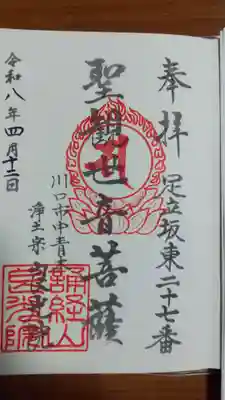 奉拝 足立坂東二十七番
聖観世音菩薩
川口市中青木
浄土宗
令和八年四月十二日